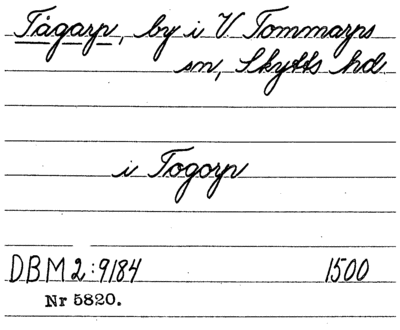 Tågarp, by i V Tommarps
sn, Skytts hd
i Togorp
DBM 2:9184 1500
Nr 5820.